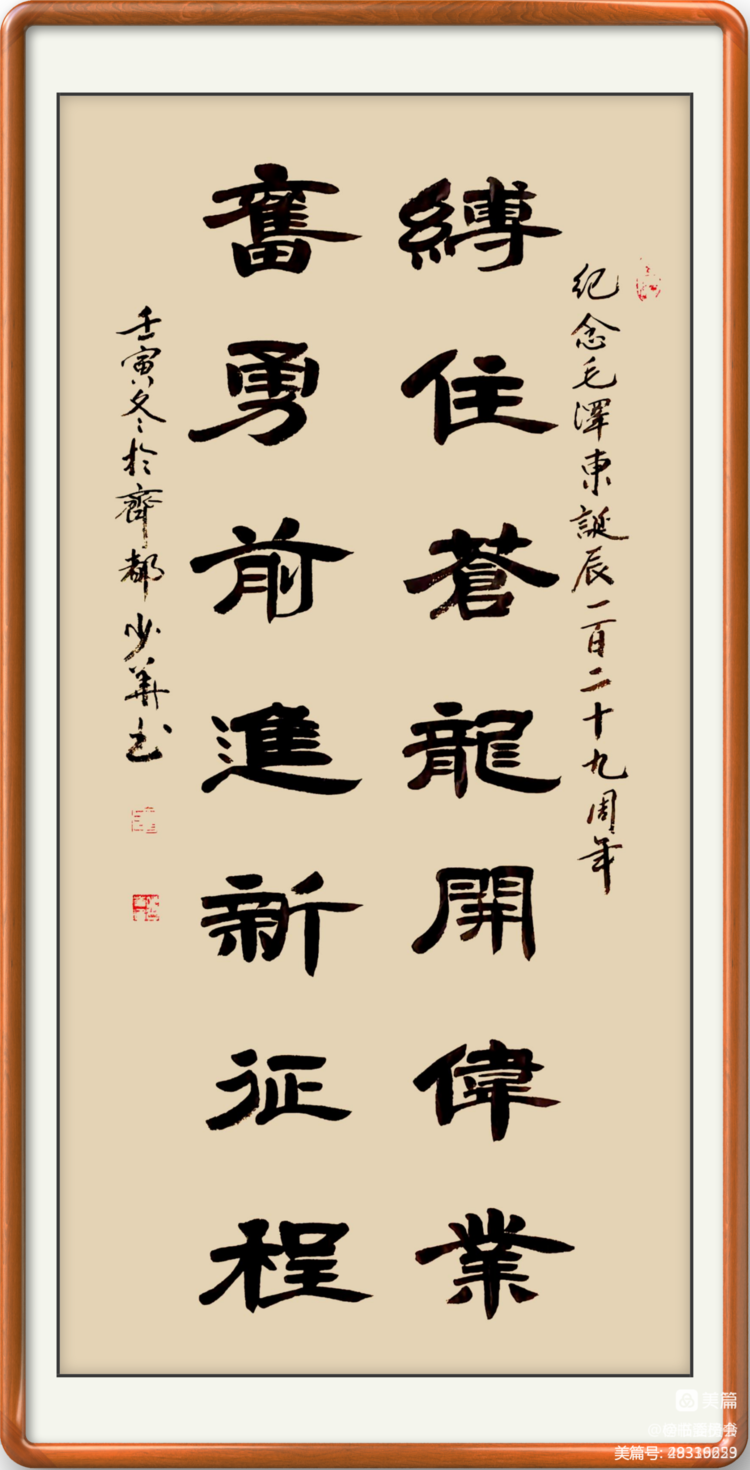 紀念毛澤東誕辰一百二十九周年
縛住蒼龍開偉業
奮勇前進新征程
壬寅冬於齊都少華书
美篇
美篇号: